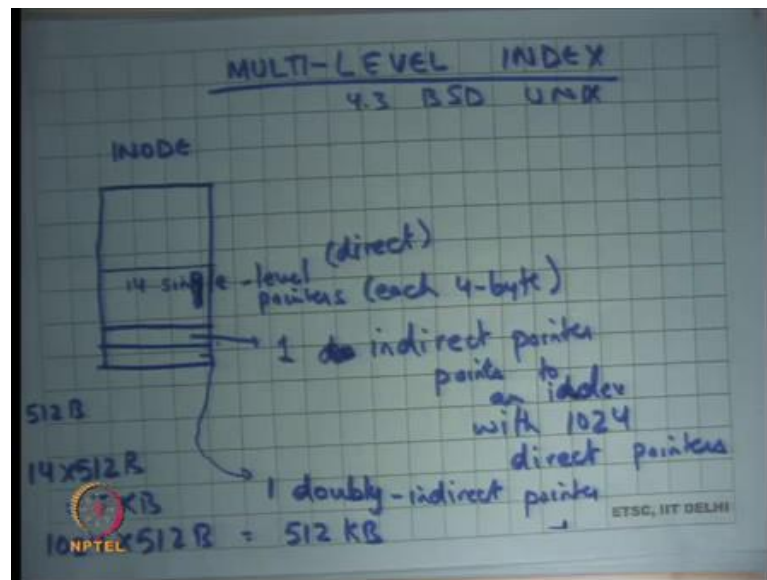 MULTI-LEVEL INDEX
4.3 BSD UNIX
INODE
(direct)
14 single-level
pointers (each 4-byte)
1 indirect pointer
points to
an
with 1024
direct pointers
1 doubly-indirect pointer
512B
14x512B
KB
x512B = 512 KB
NPTEL
ETSC, IIT DELHI